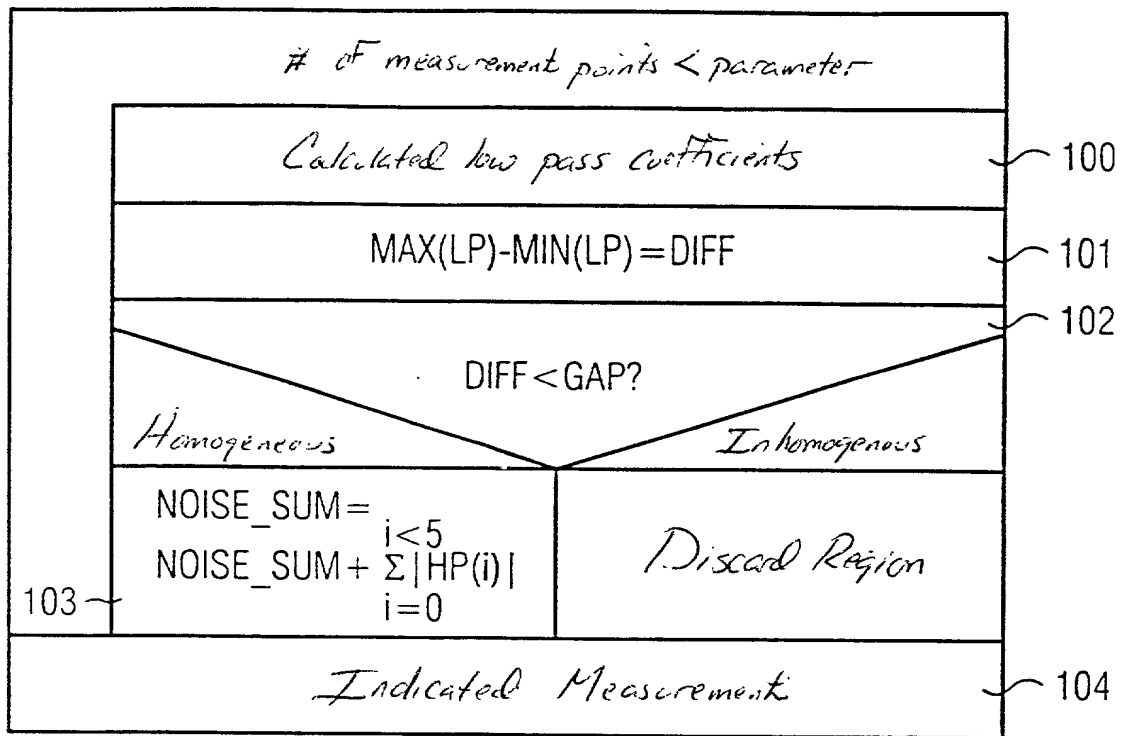 # of measurement points < parameter
Calculated low pass coefficients
100
MAX(LP)-MIN(LP)=DIFF
101
102
DIFF<GAP?
Homogeneous
Inhomogenous
NOISE_SUM=
i<5
NOISE_SUM+ Σ|HP(i)|
i=0
103
Discard Region
Indicated Measurement
104